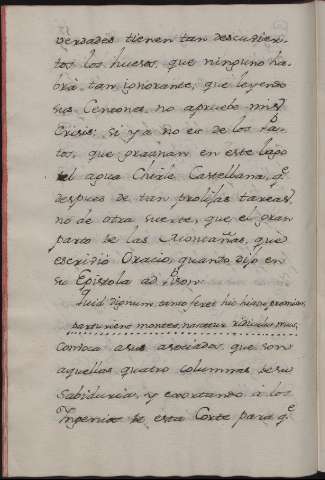 verdades tienen tan descubier-
tos los huesos, que ninguno ha-
brá tan ignorante, que leyendo
sus Cenzones, no apruebe mis
Crisis; si ya no es de los
tos, que graznan en este lago
el agua Chirle Castellana, q.e
despues de tan prolijas tareas
no de otra suerte, que el gran
parto de las Montañas, que
escribio Oracio, quando dijo en
su Epistola ad Pison.
Quid dignum tanto feret hic hiatu promisor,
parturient montes, nascetur ridiculus mus,
Convoca a sus asociados, que son
aquellas quatro columnas de su
Sabiduria, y exortando a los
Ingenios de esta Corte para q.e